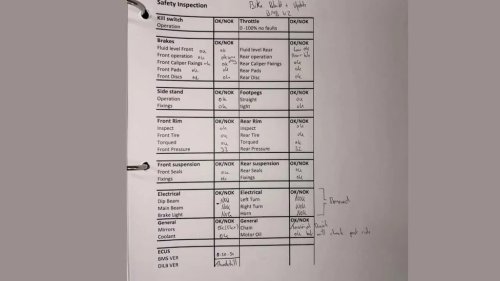 Safety Inspection
Kill switch OK/NOK Throttle OK/NOK
Operation 0 -100% no faults
Brakes OK/NOK OK/NOK
Fluid level Front ok Fluid level Rear
Front operation ok Rear operation
Front Caliper Fixings ok Rear Caliper Fixings ok
Front Pads ok Rear Pads ok
Front Discs ok Rear Disc ok
Side stand OK/NOK Footpegs OK/NOK
Operation ok Straight ok
Fixings ok tight ok
Front Rim OK/NOK Rear Rim OK/NOK
Inspect ok Inspect ok
Front Tire ok Rear Tire ok
Torqued ok Torqued ok
Front Pressure 33 Rear Pressure 32
Front suspension OK/NOK Rear suspension OK/NOK
Front Seals ok Rear Seals ok
Fixings ok Fixings ok
Electrical OK/NOK Electrical OK/NOK
Dip Beam NOK Left Turn NOK
Main Beam NOK Right Turn NOK
Brake Light NOK Horn NOK
General OK/NOK General OK/NOK
Mirrors Chain
Coolant ok Motor Oil ok will check post ride
ECUS
BMS VER
OILB VER